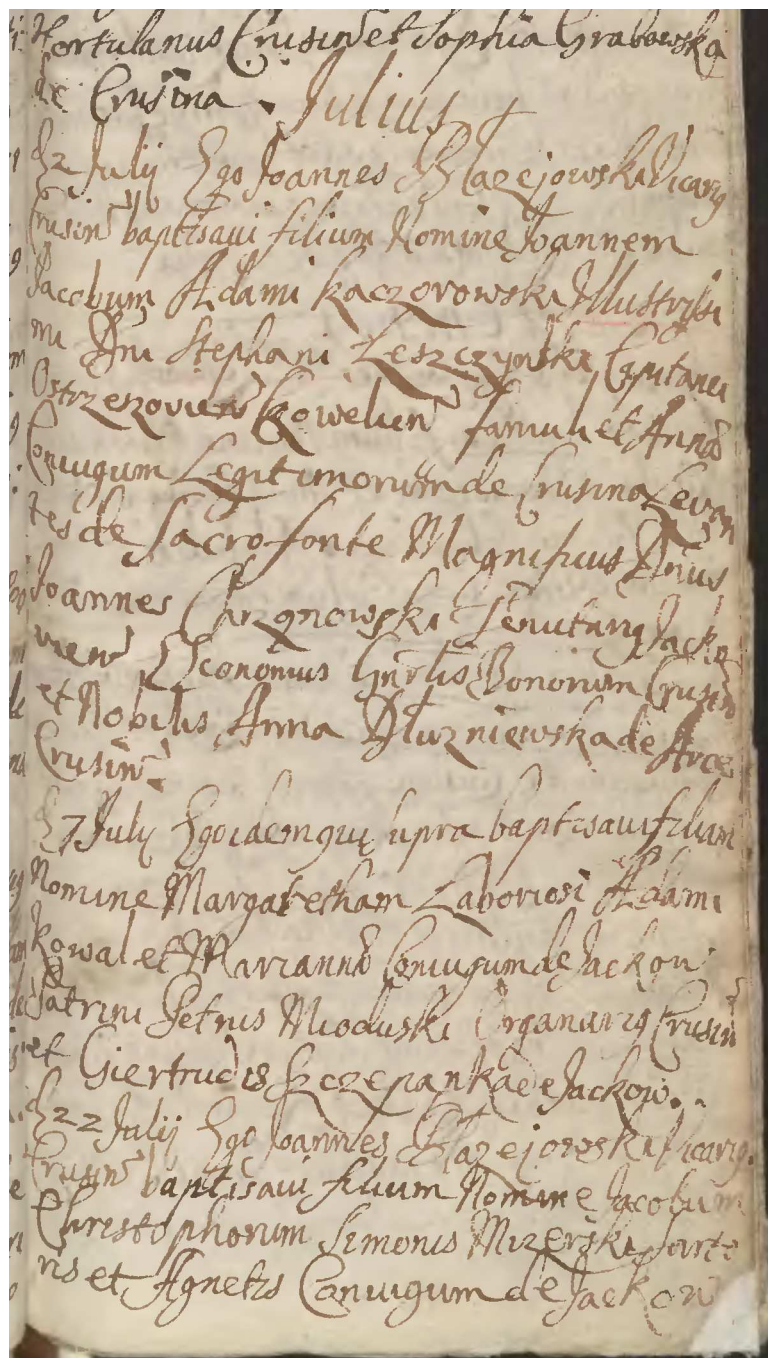 Hortulanus Crusin et Sophia Grabowska
de Crusina. Julius
D 2 Julij Ego Joannes Błazejowski Vicarig
Crusin baptisavi filium Nomine Joannem
Jacobum Adami Kaczorowski Illustrissi
mi Dni Stephani Leszczynski Capitanei
Ostrzeszovien Kowelien famuli et Anna
Coniugum Legitimorum de Crusina Levan
tes de Sacro fonte Magnificus Dnus
Joannes Chrzanowski Tenutarig Jacko
vien Oeconomus Gnrlis Bonorum Crusin
et Nobilis Anna Dłuzniewska de Arce
Crusin
D 7 Julij Ego idem qui supra baptisavi filiam
Nomine Margaretham Laboriosi Adami
Kowal et Marianna Coniugum de Jackow
Patrini Petrus Mioduski Organarig Crusin
et Giertrudis Szczepanka de Jackow.
D 22 Julij Ego Joannes Błazejowski Vicarig
Crusin baptisavi filium Nomine Jacobum
Christophorum Simonis Mizerski Sarto
ris et Agnetis Coniugum de Jackow